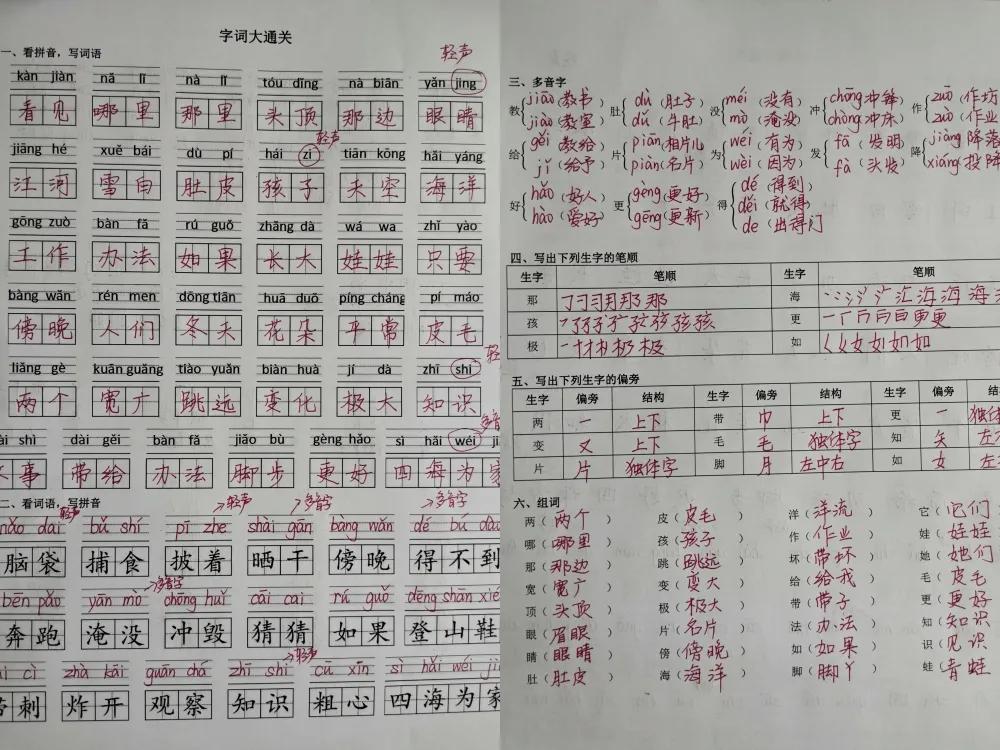 字词大通关
一、看拼音，写词语
轻声
kàn jiàn nǎ lǐ nà lǐ tóu dǐng nà biān yǎn jing
看见 哪里 那里 头顶 那边 眼睛
轻声
jiāng hé xuě bái dù pí hái zi tiān kōng hǎi yáng
江河 雪白 肚皮 孩子 天空 海洋
gōng zuò bàn fǎ rú guǒ zhǎng dà wá wa zhǐ yào
工作 办法 如果 长大 娃娃 只要
bàng wǎn rén men dōng tiān huā duǒ píng cháng pí máo
傍晚 人们 冬天 花朵 平常 皮毛
liǎng gè kuān guǎng tiào yuǎn biàn huà jí dà zhī shi
两个 宽广 跳远 变化 极大 知识
shì dài gěi bàn fǎ jiǎo bù gèng hǎo sì hǎi wéi
事 带给 办法 脚步 更好 四海为
二、看词语，写拼音
轻声 轻声 多音字 多音字
nǎo dai bǔ shí pī zhe shài gān bàng wǎn dé bú dào
脑袋 捕食 披着 晒干 傍晚 得不到
多音字
bēn pǎo yān mò chōng huǐ cāi cai rú guǒ dēng shān xié
奔跑 淹没 冲毁 猜猜 如果 登山鞋
轻声
cì zhà kāi guān chá zhī shi cū xīn sì hǎi wéi
刺 炸开 观察 知识 粗心 四海为家
三、多音字
教 jiāo（教书） 肚 dù（肚子） 没 méi（没有） 冲 chōng 冲锋 作 zuō（作坊
jiào（教室） dǔ（牛肚） mò（淹没） chòng 冲床 zuò（作业
给 gěi（教给） 片 piān 相片儿 为 wéi（有为） 发 fā（发明 降 jiàng 降落
jǐ（给予） piàn（名片） wèi（因为） fà（头发） xiáng 投降
好 hǎo（好人） 更 gèng 更好 得 dé（得到）
hào（爱好） gēng 更新 děi（就得）
de（出得门
四、写出下列生字的笔顺
生字 笔顺 生字 笔顺
那 海
孩 更
极 如
五、写出下列生字的偏旁
生字 偏旁 结构 生字 偏旁 结构 生字 偏旁
两 一 上下 带 巾 上下 更 一 独体
变 又 上下 毛 毛 独体字 知 矢 左
片 片 独体字 脚 月 左中右 如 女 左
六、组词
两（两个） 皮（皮毛） 洋（洋流） 它（它们
哪（哪里） 孩（孩子） 作（作业） 娃（娃娃
那（那边） 跳（跳远） 坏（带坏） 她（她们
宽（宽广） 变（变大） 给（给我） 毛（皮毛
顶（头顶） 极（极大） 带（带子） 更（更好
眼（眉眼） 片（名片） 法（办法） 知（知识
睛（眼睛） 傍（傍晚） 如（如果） 识（见识
肚（肚皮） 海（海洋） 脚（脚丫） 蛙（青蛙